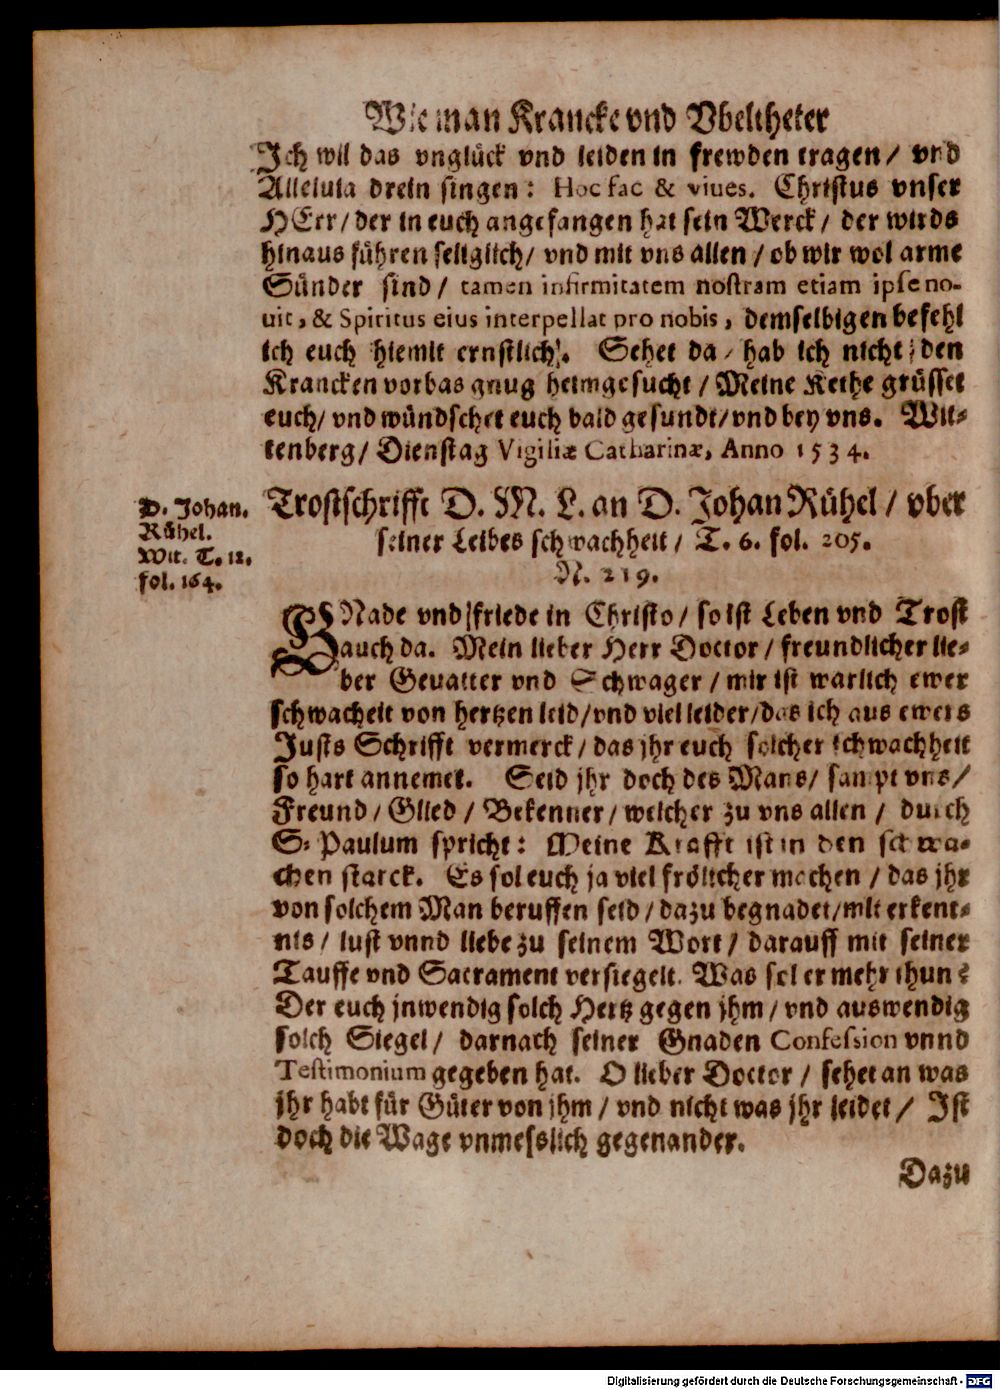 Wie man Krancke vnd Vbeltheter
Ich wil das vnglück vnd leiden in frewden tragen / vnd
Alleluia drein singen: Hoc fac & viues. Christus vnser
HErr / der in euch angefangen hat sein Werck / der wirds
hinaus führen seliglich / vnd mit vns allen / ob wir wol arme
Sünder sind / tamen infirmitatem nostram etiam ipse no-
uit, & Spiritus eius interpellat pro nobis, demselbigen befehl
ich euch hiemit ernstlich. Sehet da / hab ich nicht den
Krancken vorbas gnug heimgesucht / Meine Kethe grüsset
euch / vnd wündschet euch bald gesundt / vnd bey vns. Wit-
tenberg / Dienstag Vigiliæ Catharinæ, Anno 1534.
D. Johan.
Rühel.
Wit. T. 12.
fol. 164.
Trostschrifft D. M. L. an D. Johan Rühel / vber
seiner Leibes schwachheit / T. 6. fol. 205.
N. 219.
GNade vnd friede in Christo / so ist Leben vnd Trost
auch da. Mein lieber Herr Doctor / freundlicher lie-
ber Gevatter vnd Schwager / mir ist warlich ewer
schwacheit von hertzen leid / vnd viel leider / das ich aus ewers
Justs Schrifft vermerck / das jhr euch solcher schwachheit
so hart annemet. Seid jhr doch des Mans / sampt vns /
Freund / Glied / Bekenner / welcher zu vns allen / durch
S. Paulum spricht: Meine Krafft ist in den schwa-
chen starck. Es sol euch ja viel frölicher machen / das jhr
von solchem Man beruffen seid / dazu begnadet / mit erkent-
nis / lust vnnd liebe zu seinem Wort / darauff mit seiner
Tauffe vnd Sacrament versiegelt. Was sol er mehr thun?
Der euch jnwendig solch Hertz gegen jhm / vnd auswendig
solch Siegel / darnach seiner Gnaden Confession vnnd
Testimonium gegeben hat. O lieber Doctor / sehet an was
jhr habt für Güter von jhm / vnd nicht was jhr leidet / Ist
doch die Wage vnmesslich gegenander.
Dazu
Digitalisierung gefördert durch die Deutsche Forschungsgemeinschaft - DFG